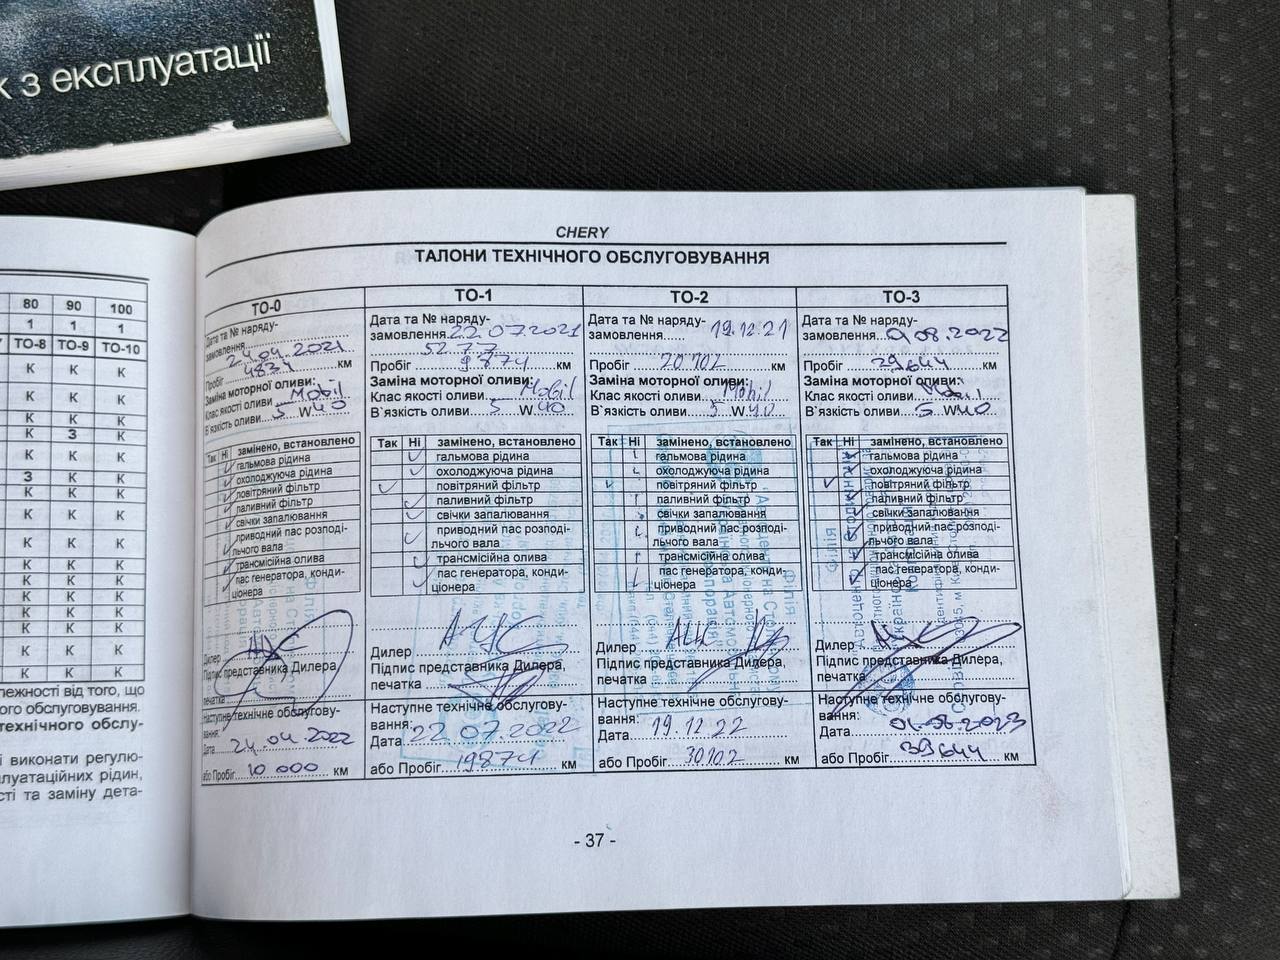 к з експлуатації
80 90 100
1 1 1
ТО-8 ТО-9 ТО-10
К К К
К К К
К К К
К З К
К К К
К К К
З К К
К К К
К К К
К К К
К К К
К К К
К К К
К К К
К К К
К К К
лежності від того, що
ого обслуговування.
технічного обслу-
і виконати регулю-
плуатаційних рідин,
сті та заміну дета-
CHERY
ТАЛОНИ ТЕХНІЧНОГО ОБСЛУГОВУВАННЯ
ТО-0
Дата та № наряду-
замовлення
24.04.2021
Пробіг 4834 км
Mobil
Клас якості оливи
В`язкість оливи 5 W 40
Так Ні замінено, встановлено
гальмова рідина
охолоджуюча рідина
повітряний фільтр
паливний фільтр
свічки запалювання
приводний пас розподі-
льчого вала
трансмісійна олива
пас генератора, конди-
ціонера
Дилер
Підпис представника Дилера,
печатка
Наступне технічне обслугову-
вання:
Дата 24.04.2022
або Пробіг 10 000 км
ТО-1
Дата та № наряду-
замовлення 22.07.2021
5277
Пробіг 9874 км
Заміна моторної оливи:
Клас якості оливи Mobil
В`язкість оливи 5 W 40
Так Ні замінено, встановлено
гальмова рідина
охолоджуюча рідина
повітряний фільтр
паливний фільтр
свічки запалювання
приводний пас розподі-
льчого вала
трансмісійна олива
пас генератора, конди-
ціонера
Дилер АЦС
Підпис представника Дилера,
печатка
Наступне технічне обслугову-
вання:
Дата 22.07.2022
або Пробіг 19874 км
ТО-2
Дата та № наряду-
замовлення 19.12.21
Пробіг 20102 км
Заміна моторної оливи:
Клас якості оливи Mobil
В`язкість оливи 5 W 40
Так Ні замінено, встановлено
гальмова рідина
охолоджуюча рідина
повітряний фільтр
паливний фільтр
свічки запалювання
приводний пас розподі-
льчого вала
трансмісійна олива
пас генератора, конди-
ціонера
Дилер
Підпис представника Дилера,
печатка
Наступне технічне обслугову-
вання:
Дата 19.12.22
або Пробіг 30102 км
ТО-3
Дата та № наряду-
замовлення 01.08.2022
Пробіг 29644 км
Заміна моторної оливи:
Клас якості оливи Mobil
В`язкість оливи 5 W 40
Так Ні замінено, встановлено
гальмова рідина
охолоджуюча рідина
повітряний фільтр
паливний фільтр
свічки запалювання
приводний пас розподі-
льчого вала
трансмісійна олива
пас генератора, конди-
ціонера
Дилер
Підпис представника Дилера,
печатка
Наступне технічне обслугову-
вання:
Дата 01.08.2023
або Пробіг 39644 км
- 37 -